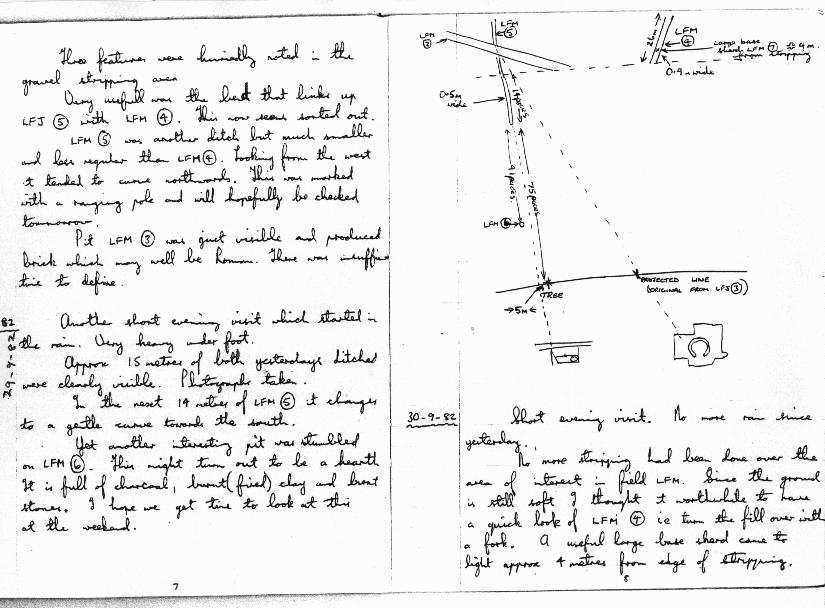 Three features were hurriedly noted in the
gravel stripping area
Very usefull was the bend that links up
LFJ ⑤ with LFM ④. This now seems sorted out.
LFM ⑤ was another ditch but much smaller
and less regular than LFM ④. Looking from the west
it tended to curve northwards. This was marked
with a ranging pole and will hopefully be checked
tommorrow.
Pit LFM ③ was just visible and produced
brick which may well be Roman. There was insuffice
time to define.
82
29-9-82
Another short evening visit which started in
the rain. Very heavy under foot.
Approx 15 metres of both yesterdays ditches
were clearly visible. Photographs taken.
In the next 14 metres of LFM ⑤ it changes
to a gentle curve towards the south.
Yet another interesting pit was stumbled
on LFM ⑥. This might turn out to be a hearth
It is full of charcoal, burnt (fired) clay and burnt
stones. I hope we get time to look at this
at the weekend.
7
LFM ③
LFM ⑤
26m
LFM ④
Large base
shard LFM ⑦ @ 4m.
from stripping
0.9m wide
0.5m
wide
14 paces
41 paces
75 paces
LFM ⑥
TREE
5M
PROTECTED LINE
(ORIGINAL FROM LFJ ③)
30-9-82
Short evening visit. No more rain since
yesterday.
No more stripping had been done over the
area of interest in field LFM. Since the ground
is still soft I thought it worthwhile to have
a quick look of LFM ④ ie turn the fill over with
a fork. A useful large base shard came to
light approx 4 metres from edge of stripping.
8